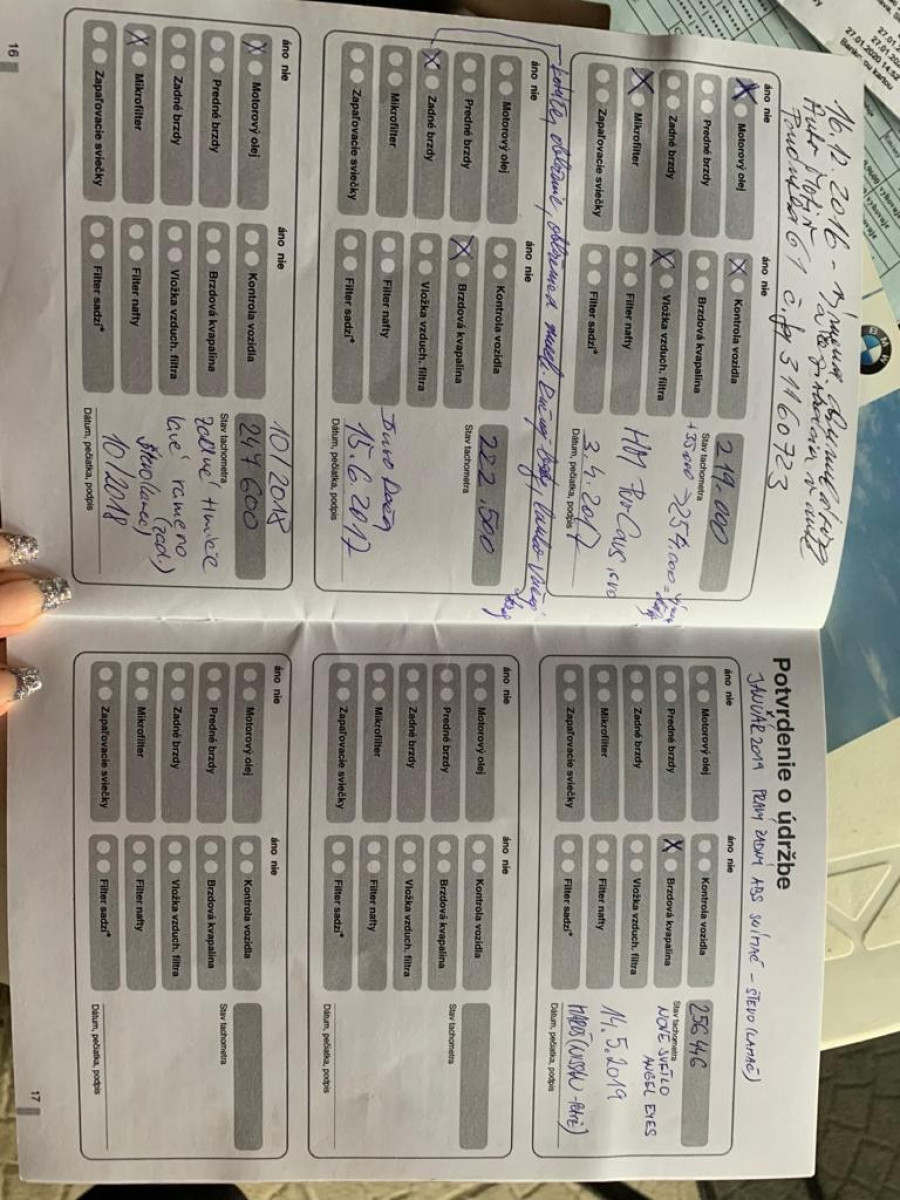 16.12.2016 - výmena
Podunajská 61 č. 3116723
áno nie
áno nie
X Motorový olej
X Kontrola vozidla
219.000
Predné brzdy
Brzdová kvapalina
Stav tachometra
Zadné brzdy
X Vložka vzduch. filtra
+35.000 > 254.000 =
X Mikrofilter
Filter nafty
Zapaľovacie sviečky
Filter sadzí*
3.4.2017
Dátum, pečiatka, podpis
áno nie
áno nie
Motorový olej
Kontrola vozidla
222.500
Predné brzdy
X Brzdová kvapalina
Stav tachometra
X Zadné brzdy
Vložka vzduch. filtra
Mikrofilter
Filter nafty
Zapaľovacie sviečky
Filter sadzí*
15.6.2017
Dátum, pečiatka, podpis
10/2018
áno nie
áno nie
X Motorový olej
Kontrola vozidla
247600
Predné brzdy
Brzdová kvapalina
Stav tachometra
zadné tlmiče
Zadné brzdy
Vložka vzduch. filtra
ľavé rameno
(zad.)
X Mikrofilter
Filter nafty
Števo (Lamač)
Zapaľovacie sviečky
Filter sadzí*
10/2018
Dátum, pečiatka, podpis
16
Potvrdenie o údržbe
JANUÁR 2019 PRAVÝ ZADNÝ ABS SNÍMAČ - ŠTEVO (LAMAČ)
áno nie
áno nie
Motorový olej
Kontrola vozidla
256446
Predné brzdy
X Brzdová kvapalina
Stav tachometra
NOVÉ SVETLO
ANGEL EYES
Zadné brzdy
Vložka vzduch. filtra
Mikrofilter
Filter nafty
14.5.2019
Zapaľovacie sviečky
Filter sadzí*
Dátum, pečiatka, podpis
áno nie
áno nie
Motorový olej
Kontrola vozidla
Predné brzdy
Brzdová kvapalina
Stav tachometra
Zadné brzdy
Vložka vzduch. filtra
Mikrofilter
Filter nafty
Zapaľovacie sviečky
Filter sadzí*
Dátum, pečiatka, podpis
áno nie
áno nie
Motorový olej
Kontrola vozidla
Predné brzdy
Brzdová kvapalina
Stav tachometra
Zadné brzdy
Vložka vzduch. filtra
Mikrofilter
Filter nafty
Zapaľovacie sviečky
Filter sadzí*
Dátum, pečiatka, podpis
17
BMW
27.01.2020
27.01.2020 14:52